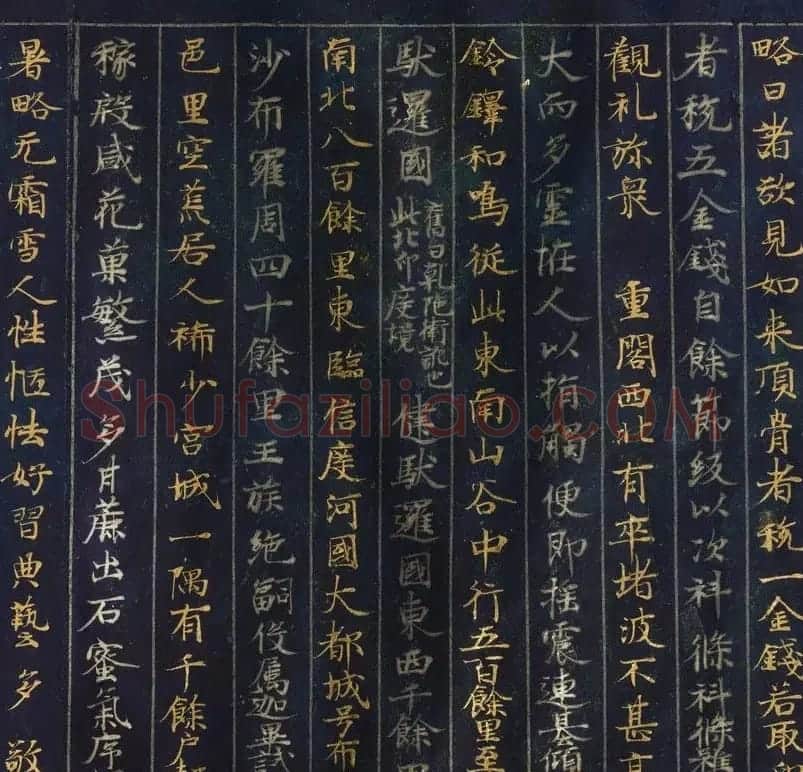 略曰諸欲見如来頂骨者稅一金錢若取
者稅五金錢自餘節級以次科條科條雖
觀礼弥衆 重閣西北有卒堵波不甚高
大而多靈在人以指觸便即揺震連基傾
鈴鐸和鳴從此東南山谷中行五百餘里至
馱邏國 舊曰乾陁衛訛也此北印度境 健馱邏國東西千餘里
南北八百餘里東臨信度河國大都城号布
沙布羅周四十餘里王族絶嗣役屬迦畢試
邑里空荒居人稀少宮城一隅有千餘户
稼殷盛花菓繁茂多甘蔗出石蜜氣序
暑略无霜雪人性恇怯好習典藝多敬
Shufaziliao.COM